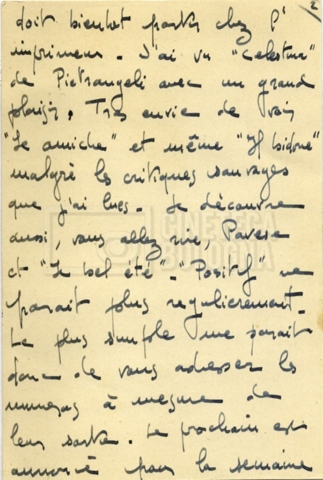 2
doit bientôt partir chez l'
imprimeur. J'ai vu "Celestina"
de Pietrangeli avec un grand
plaisir. Très envie de voir
"Le amiche" et même "Il bidone"
malgré les critiques sauvages
que j'ai lues. Je découvre
aussi, vous allez rire, Pavese
et "Le bel été". Positif ne
paraît plus régulièrement.
Le plus simple me paraît
donc de vous adresser les
numéros à mesure de
leur sortie. Le prochain est
annoncé pour la semaine
CINETECA
BOLOGNA